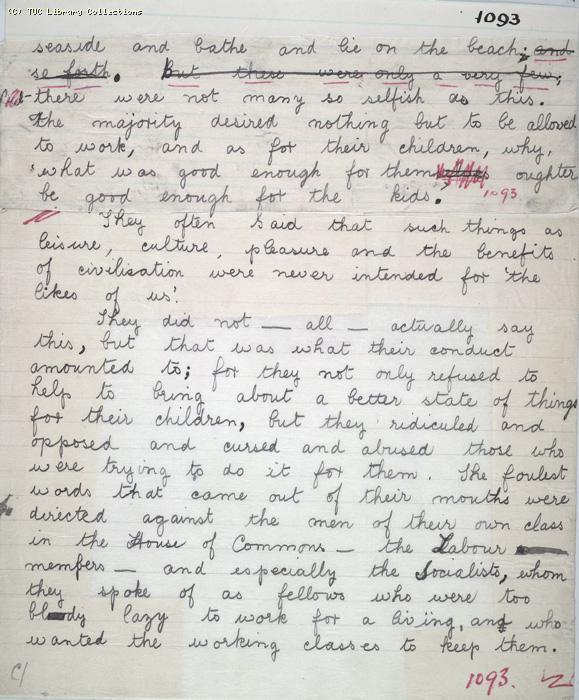 (C) TUC Library Collections
1093
seaside and bathe and lie on the beach; and
so forth. But these were only a very few;
there were not many so selfish as this.
The majority desired nothing but to be allowed
to work, and as for their children, why,
'what was good enough for them oughter
be good enough for the kids.' 1093
They often said that such things as
leisure, culture, pleasure and the benefits
of civilisation were never intended for 'the
likes of us'.
They did not — all — actually say
this, but that was what their conduct
amounted to; for they not only refused to
help to bring about a better state of things
for their children, but they ridiculed and
opposed and cursed and abused those who
were trying to do it for them. The foulest
words that came out of their mouths were
directed against the men of their own class
in the House of Commons — the Labour
members — and especially the Socialists, whom
they spoke of as fellows who were too
bloody lazy to work for a living, and who
wanted the working classes to keep them.
1093.